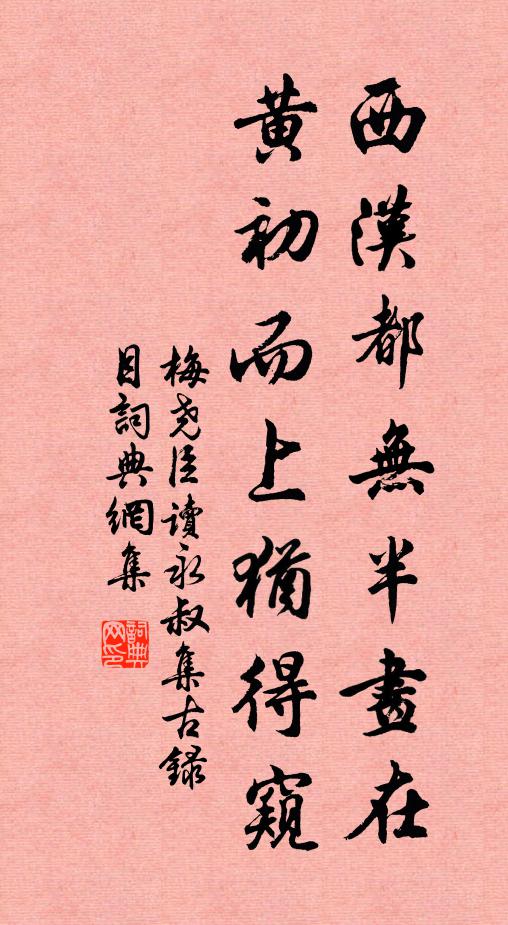 西漢都無半畫在
黃初而上猶得窺
梅堯臣讀永叔集古錄
目詞典網集
詞典
网印